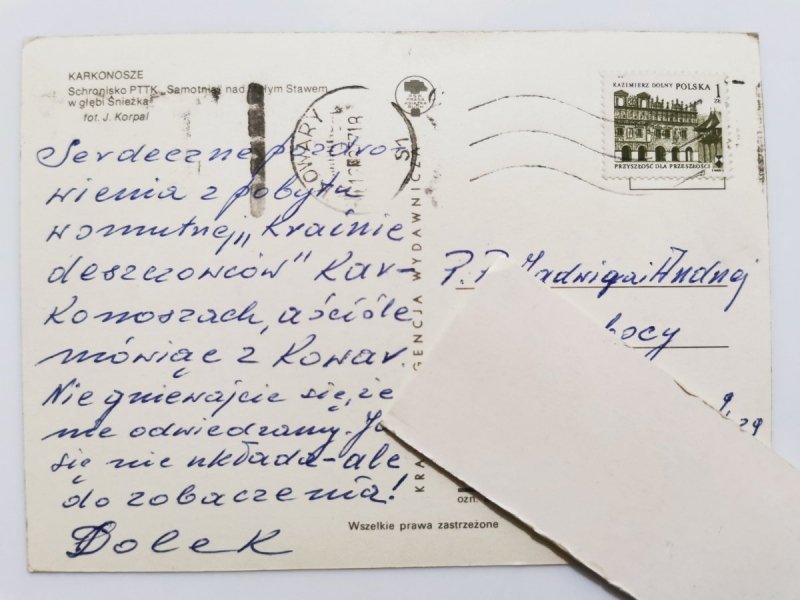 KARKONOSZE
Schronisko PTTK „Samotnia" nad Małym Stawem
w głębi Śnieżka
fot. J. Korpal
Serdeczne pozdro-
wienia z pobytu
w smutnej „Krainie
deszczowców" Kar-
konoszach, a ściśle
mówiąc z Kowar.
Nie gniewajcie się, że
nie odwiedzamy.
się nie układa - ale
do zobaczenia!
Bolek
Wszelkie prawa zastrzeżone
GENCJA WYDAWNICZA
KRA
ozn.
OWARY
KAZIMIERZ DOLNY POLSKA 1
ZŁ
PRZYSZŁOŚĆ DLA PRZESZŁOŚCI
P.P. Jadwiga i Andrzej
ocy
9, 29